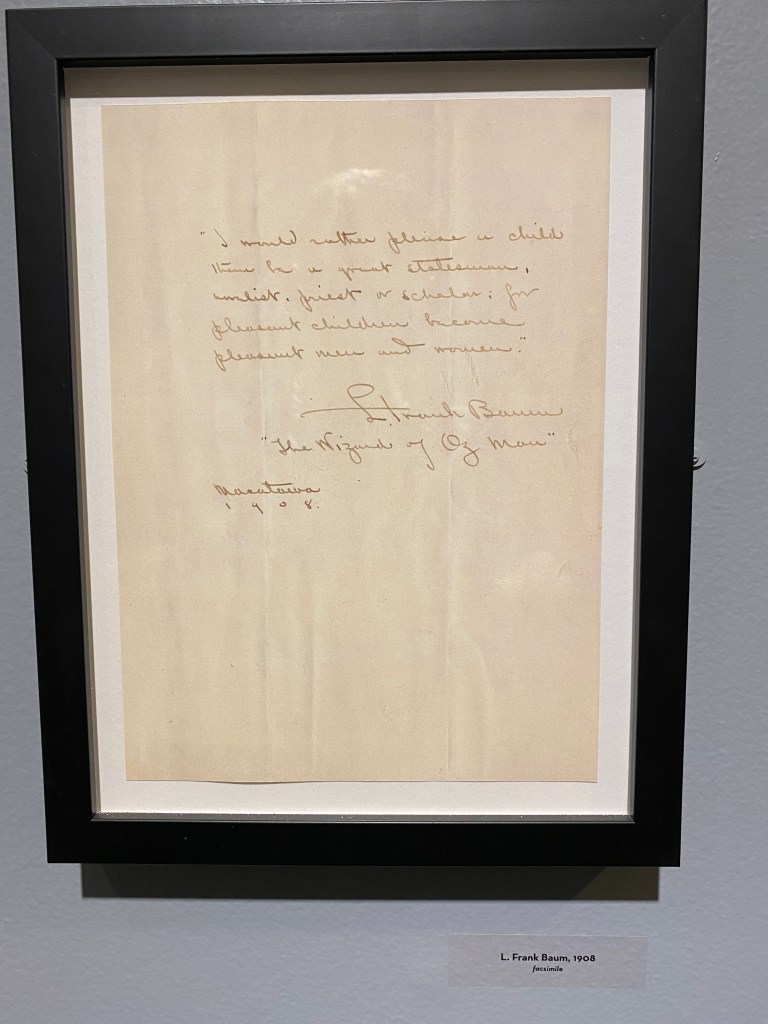 "I would rather please a child
than be a great statesman,
novelist, priest or scholar; for
pleasant children become
pleasant men and women."
L. Frank Baum
"The Wizard of Oz Man"
Macatawa
1908.
L. Frank Baum, 1908
facsimile